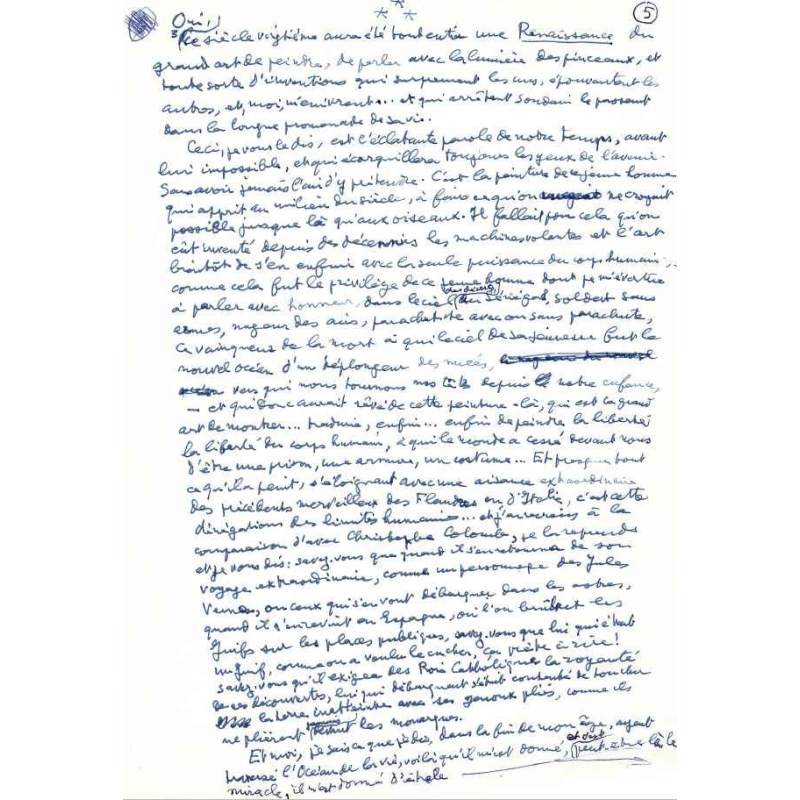 ***
5
Oui,
Ce siècle vingtième aura été tout entier une Renaissance du
grand art de peindre, de parler avec la lumière des pinceaux, et
toute sorte d'inventions qui surprennent les uns, épouvantent les
autres, et, moi, m'enivrent... et qui arrêtent soudain le passant
dans la longue promenade de sa vie.
Ceci, je vous le dis, est l'éclatante parole de notre temps, avant
lui impossible, et qui écarquillera toujours les yeux de l'avenir.
Sans avoir jamais l'air d'y prétendre. C'est la peinture de ce jeune homme
qui apprit au milieu du siècle, à faire ce qu'on ne croyait
possible jusque là qu'aux oiseaux. Il fallait pour cela qu'on
eût inventé depuis des décennies les machines volantes et l'art
bientôt de s'en enfuir avec la seule puissance du corps humain...,
comme cela fut le privilège de ce jeune homme dont je m'évertue
à parler avec honneur, dans le ciel du Sénégal, soldat sans
armes, nageur des airs, parachutiste avec ou sans parachute,
ce vainqueur de la mort à qui le ciel de sa jeunesse fut le
nouvel océan d'un déplongeur des nuées,
vers qui nous tournons nos têtes depuis notre enfance,
— et qui donc aurait rêvé de cette peinture-là, qui est le grand
art de montrer... traduire, enfin... enfin de peindre la liberté
la liberté du corps humain, à qui le monde a cessé devant nous
d'être une prison, une armure, un costume... Et presque tout
ce qu'il a peint, s'éloignant avec une aisance extraordinaire
des précédents merveilleux des Flandres ou d'Italie, c'est cette
dénégation des limites humaines... et j'acquiers à la
comparaison d'avec Christophe Colomb, je la reprends
et je vous dis: savez-vous que quand il s'en retourna de son
voyage extraordinaire, comme un personnage des Jules
Verne, ou ceux qui s'en vont débarquer dans les astres,
quand il s'en revint en Espagne, où l'on brûlait les
Juifs sur les places publiques, savez-vous que lui qui était
un Juif, comme on a voulu le cacher, ça prête à rire!
savez-vous qu'il exigea des Rois Catholiques la royauté
de ses découvertes, lui qui débarquant s'était contenté de toucher
la terre inatteinte avec ses genoux pliés, comme ils
ne plièrent jamais devant les monarques.
Et moi, je sais ce que je dis, dans la fin de mon âge, ayant
traversé l'Océan de la vie, voilà qu'il m'est donné, et c'est peut-être là le
miracle, il m'est donné d'être